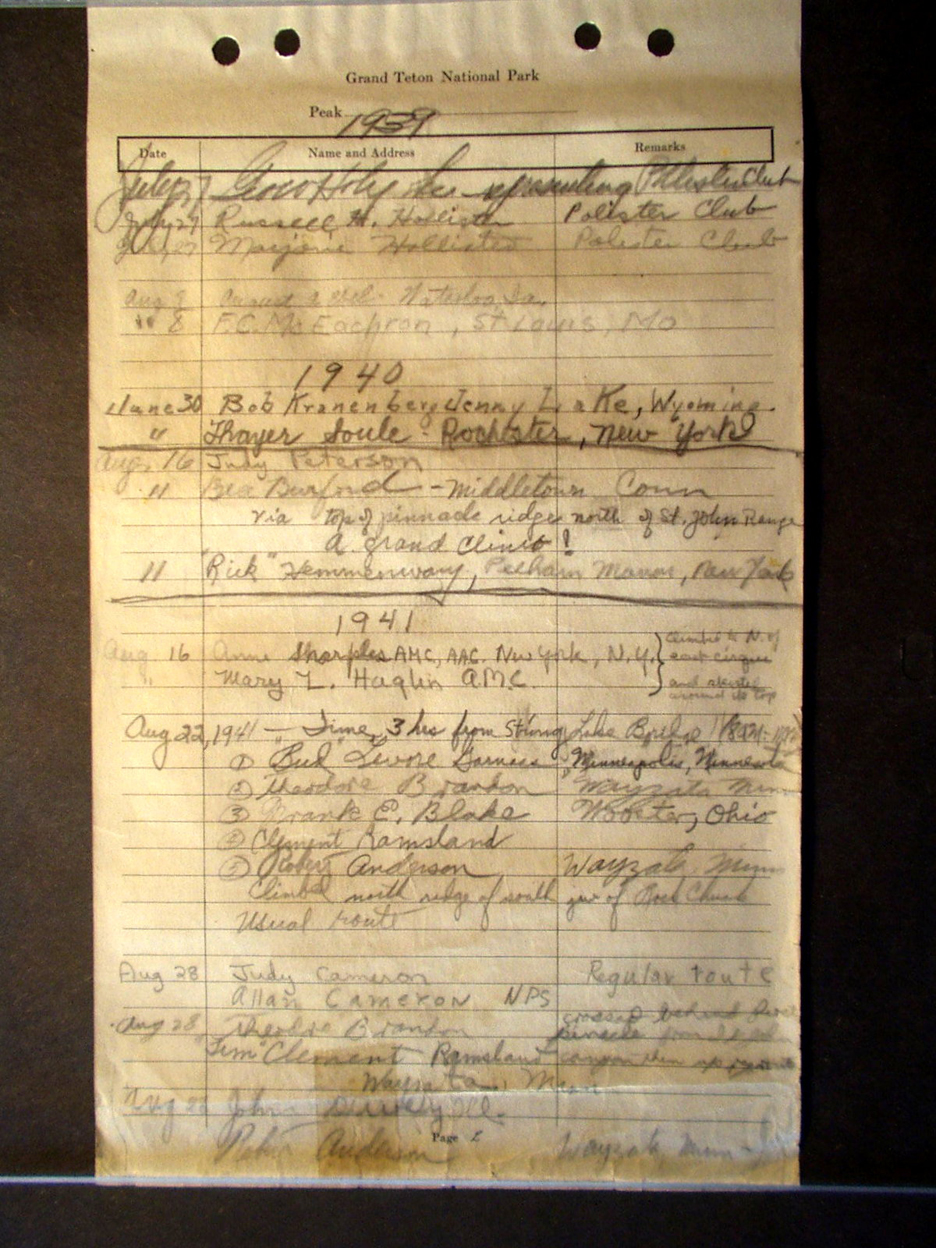 Grand Teton National Park
Peak 1939
Date Name and Address Remarks
July 27
July 27 Russell H. Hollister Polister Club
July 27 Marjorie Hollister Polister Club
Aug 8 Waterloo Ia.
" 8 F.C. McEachron, St Louis, Mo
1940
June 30 Bob Kranenberg Jenny Lake, Wyoming.
" Thayer Soule - Rochester, New York
Aug. 16 Judy Peterson
" Bea Burford - Middletown Conn
via top of pinnacle ridge north of St. John Range
A grand climb!
" "Rick" Hemmenway, Pelham Manor, New York
1941
Aug. 16 Anne Sharples AMC, AAC. New York, N.Y. climbed to N. of
east cirque
" Mary L. Haglin A.M.C. and skirted
around its top
Aug 22, 1941 - Time, 3 hrs from String Lake Bridge
① "Bud" Minneapolis, Minnesota
② Theodore Brandon Wayzata Minn
③ Frank E. Blake Wooster, Ohio
④ Clement Ramsland
⑤ Robert Anderson Wayzata, Minn
Climbed north ridge of south of Rock Chuck
Usual route
Aug 28 Judy Cameron Regular route
Allan Cameron NPS
crossed behind first
Aug 28 Theodore Brandon pinnacle from
"Jim" Clement Ramsland canyon then up
Wayzata, Minn
Aug 28 John Ill.
Page 2
Robert Anderson Wayzata Minn